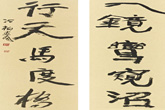 入鏡鸞窺沼
行天馬度橋